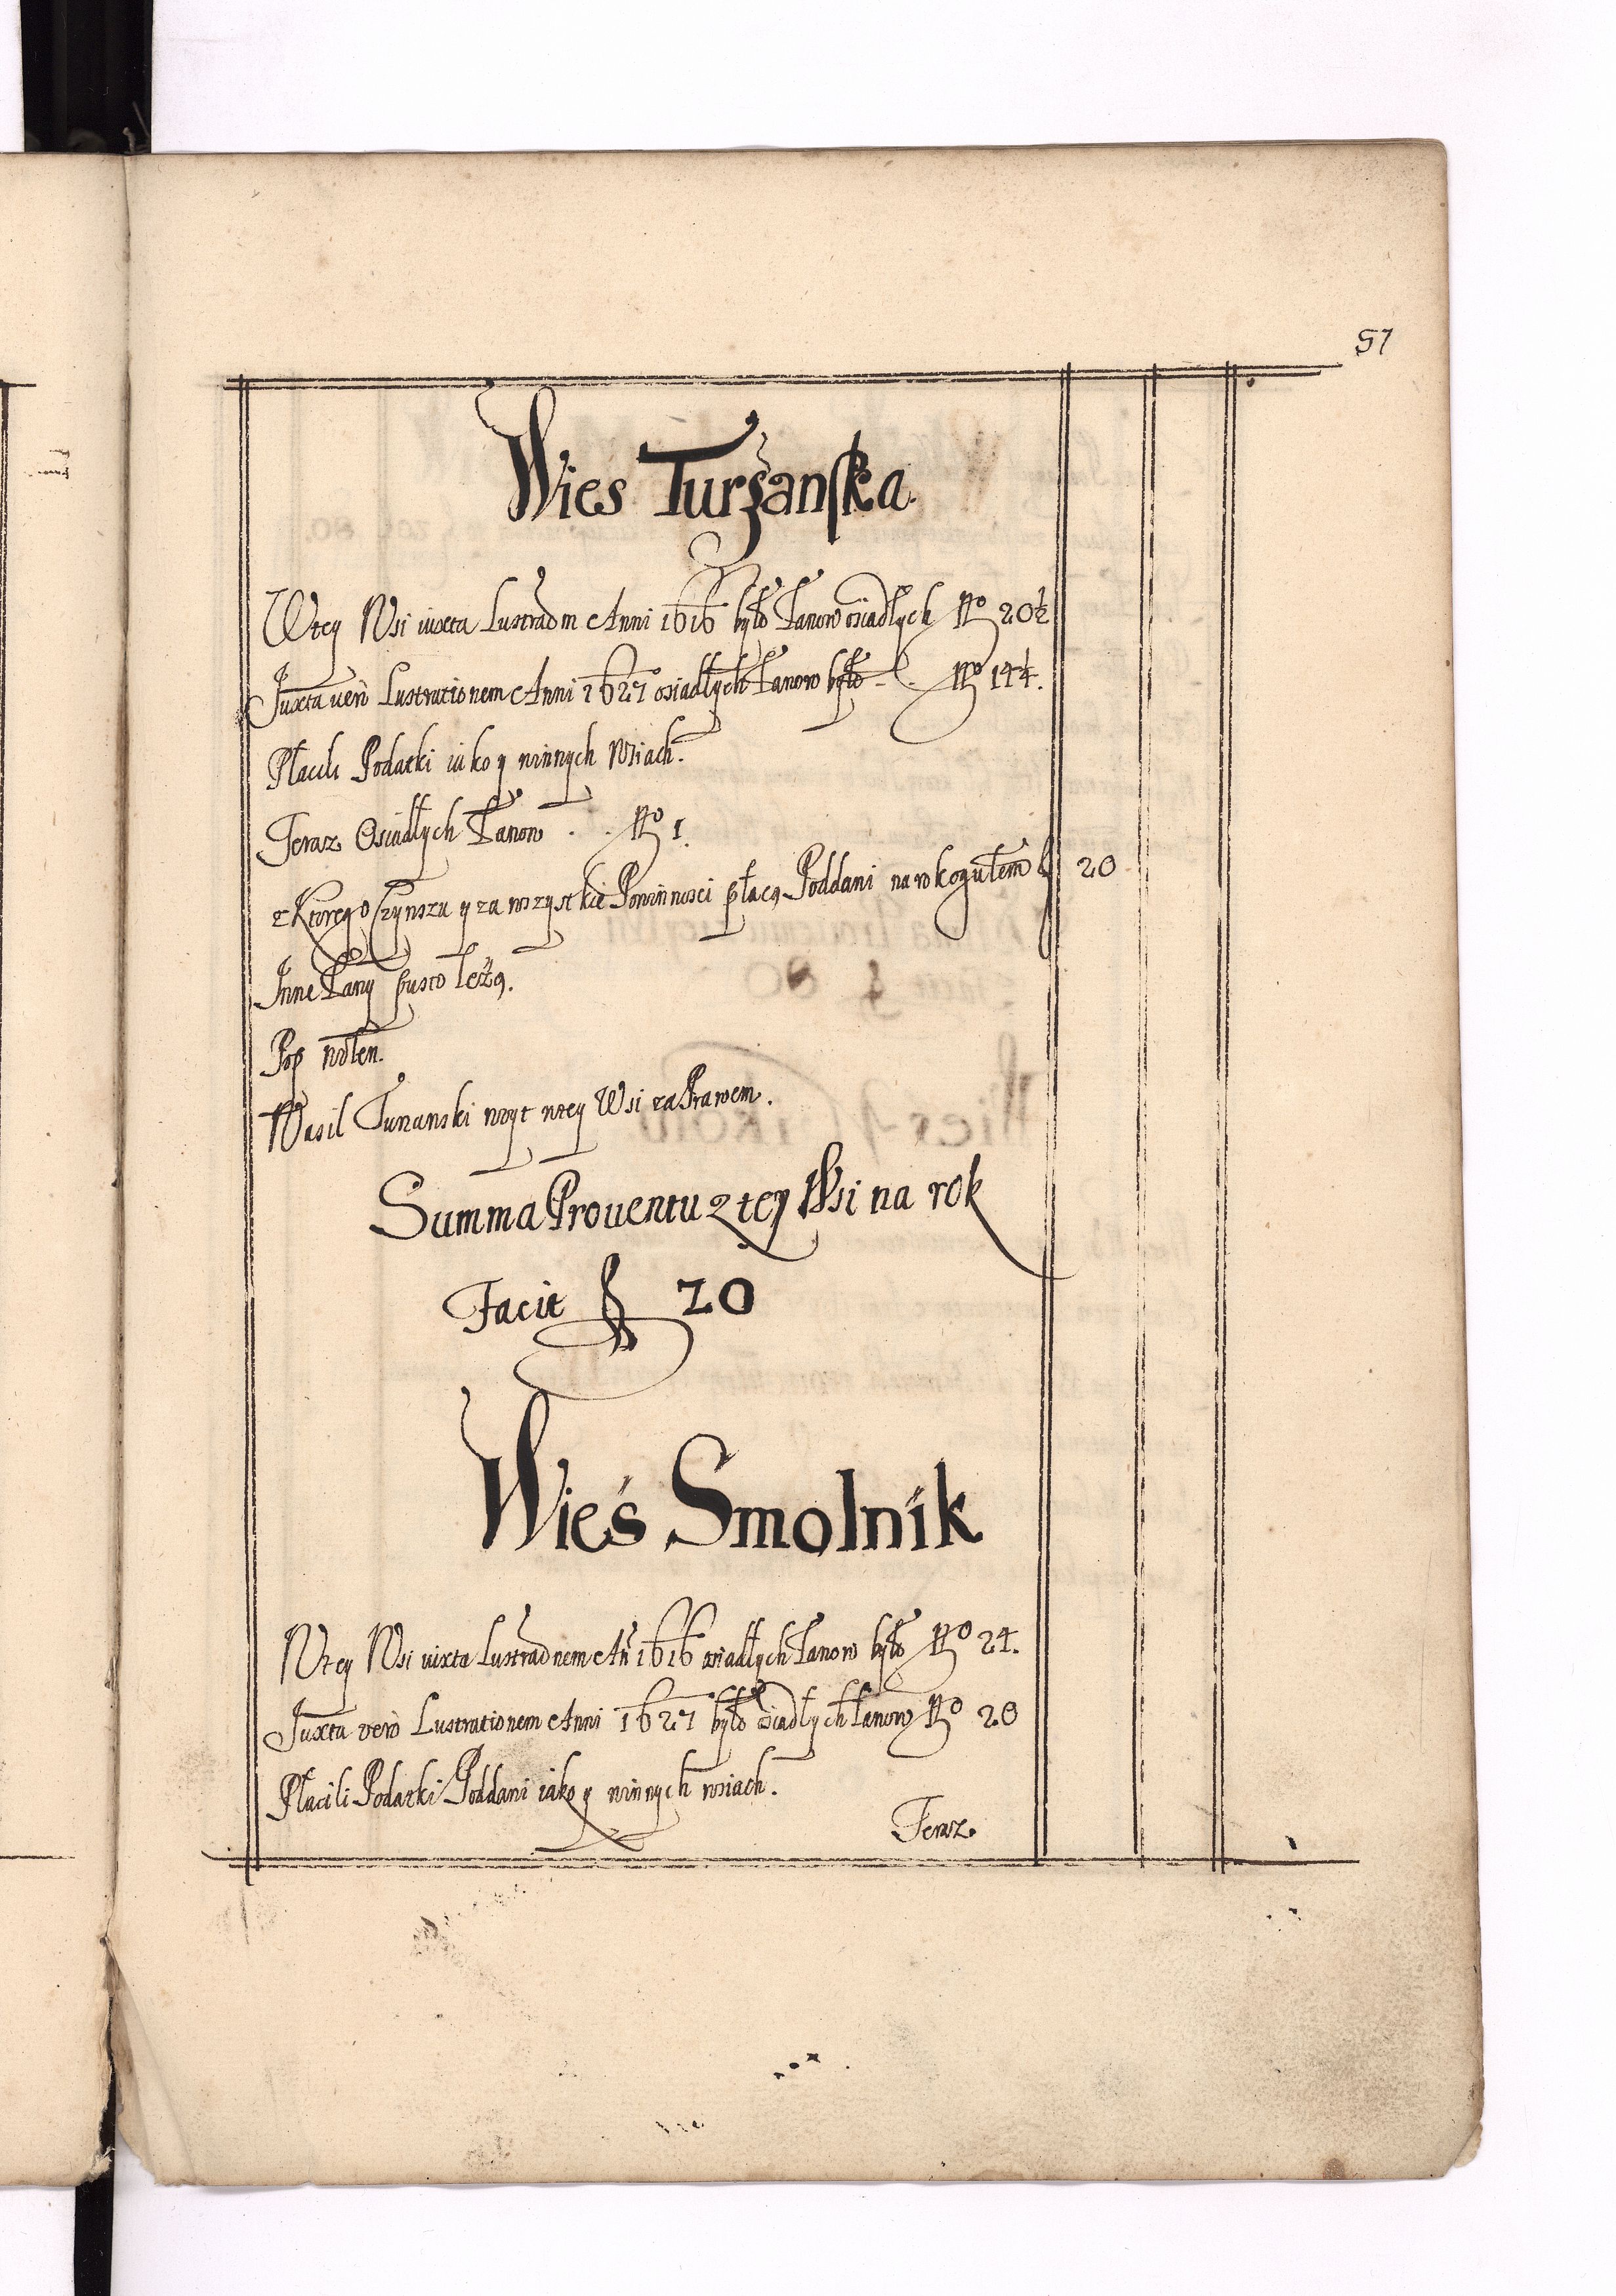 57
Wies Turzanska
W tey Wsi iuxta Lustraōm Anni 1616 było Łanow osiadłych Nro 20½
Juxta vero Lustrationem Anni 1627 osiadłych Łanow było - . Nro 14¼.
Płacili Podatki iako y w innych Wsiach.
Teraz Osiadłych Łanow . . Nro 1.
z Ktorego Czynszu y za wszystkie Powinnosci płacą Poddani na rok ogułem f 20
Inne Łany pusto leżą.
Pop wolen.
Wasil Turzanski woyt w tey Wsi za Prawem.
Summa Proventu z tey Wsi na rok
Facit f 20
Wieś Smolnik
W tey Wsi iuxta Lustraōnem Añ 1616 osiadłych Łanow było Nro 24.
Juxta vero Lustrationem Anni 1627 było osiadłych Łanow Nro 20
Płacili Podatki Poddani iako y w innych wsiach.
Teraz